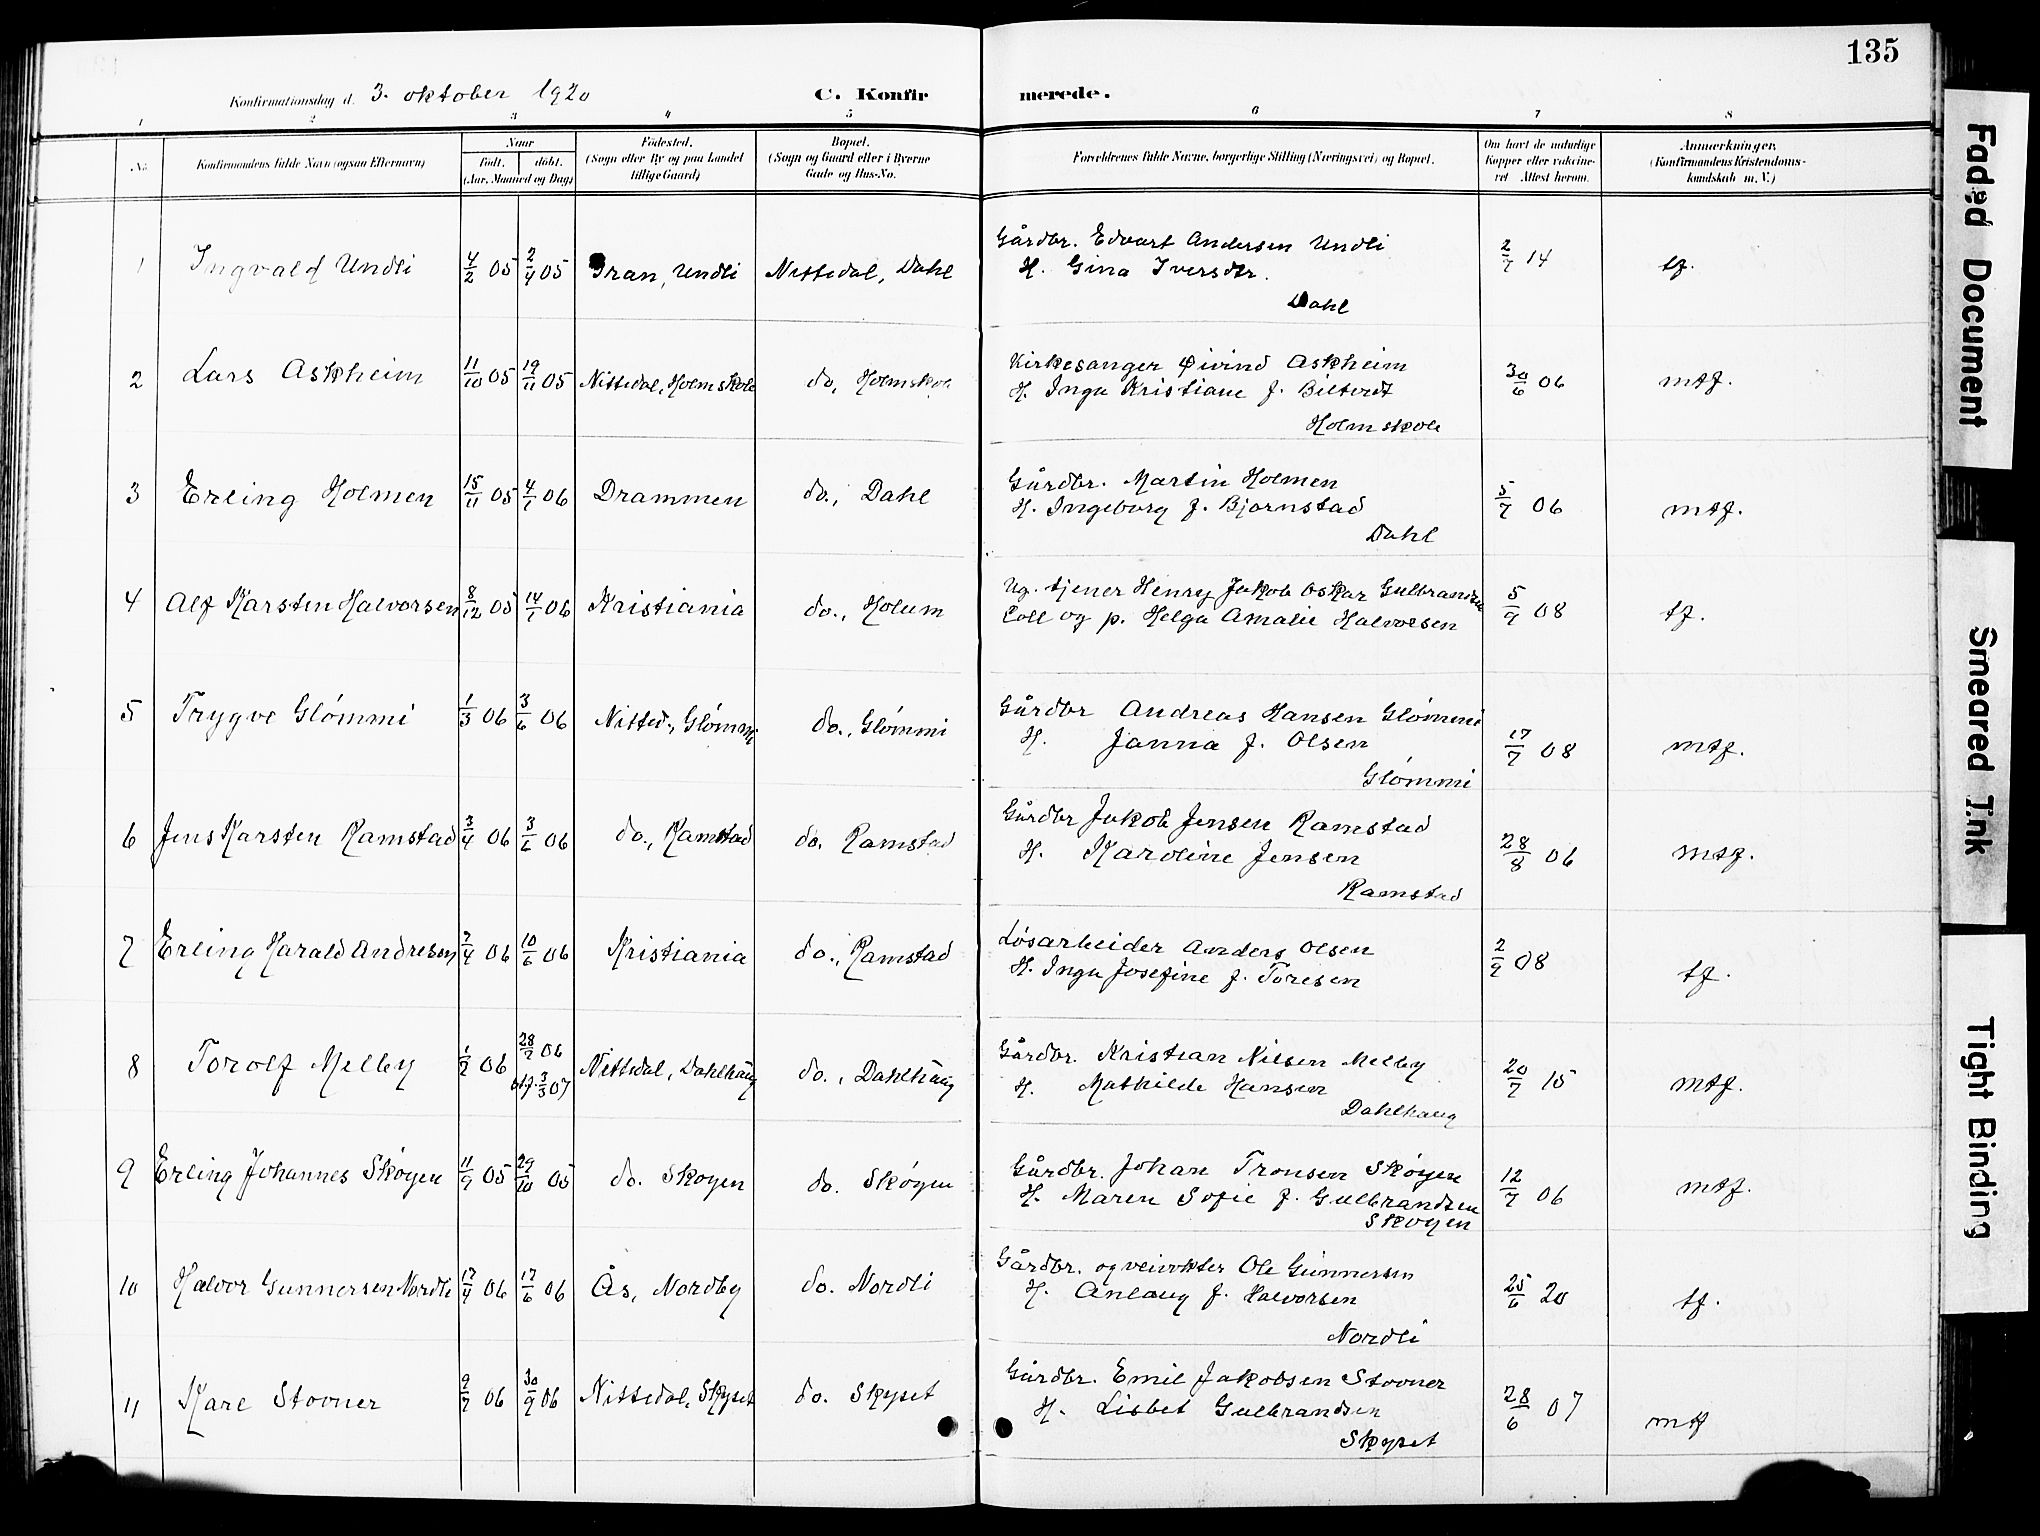 135
Konfirmationsdag d. 3. oktober 1920 C. Konfirmerede.
1 2 3 4 5 6 7 8
No. Konfirmandens fulde Navn (ogsaa Efternavn) Naar født. døbt. (Aar, Maaned og Dag) Fødested. (Sogn eller By og paa Landet tillige Gaard) Bopæl. (Sogn og Gaard eller i Byerne Gade og Hus-No. Forældrenes fulde Navne, borgerlige Stilling (Næringsvei) og Bopæl. Om havt de naturlige Kopper eller vaccineret Attest herom. Anmerkninger. (Konfirmandens Kristendomskundskab m. V.)
1 Ingvald Undli 4/2 05 2/4 05 Gran, Undli Nittedal, Dahl Gårdbr. Edvart Andersen Undli 2/7 14 tf.
H. Gina Iversdtr.
Dahl
2 Lars Askheim 11/10 05 19/11 05 Nittedal, Holm skole do, Holmskole Kirkesanger Øivind Askheim 30/6 06 mtf.
H. Inga Kristiane f. Biltvedt
Holm skole
3 Erling Holmen 15/11 05 4/1 06 Drammen do., Dahl Gårdbr. Martin Holmen 5/7 06 mtf.
H. Ingeborg f. Bjørnstad
Dahl
4 Alf Karsten Halvorsen 8/12 05 14/1 06 Kristiania do., Holum Ug. tjener Henry Jakob Oskar Gulbrandsen 5/9 08 tf.
Coll og p. Helga Amalie Halvorsen
5 Trygve Glömmi 1/3 06 3/6 06 Nitted., Glömmi do., Glömmi Gårdbr Andreas Hansen Glömmi 17/7 08 mtf.
H. Janna f. Olsen
Glömmi
6 Jens Karsten Ramstad 3/4 06 3/6 06 do., Ramstad do. Ramstad Gårdbr Jakob Jensen Ramstad 28/8 06 mtf.
H. Karoline Jensen
Ramstad
7 Erling Harald Andresen 7/4 06 10/6 06 Kristiania do., Ramstad Løsarbeider Anders Olsen 2/9 08 tf.
H. Inga Josefine f. Toresen
8 Torolf Melby 1/2 06 28/2 06 Nittedal, Dahlhaug do., Dahlhaug Gårdbr. Kristian Nilsen Melby 20/7 15 mtf.
3/3 07 H. Mathilde Hansen
Dahlhaug
9 Erling Johannes Skøyen 11/9 05 29/10 05 do. Skøyen do. Skøyen Gårdbr. Johan Tronsen Skøyen 12/7 06 mtf.
H. Maren Sofie f. Gulbrandsen
Skøyen
10 Halvor Gunnersen Nordli 17/4 06 17/6 06 Ås, Nordby do. Nordli Gårdbr. og veivokter Ole Gunnersen 25/6 20 tf.
H. Anlaug f. Halvorsen
Nordli
11 Kare Stovner 9/7 06 30/9 06 Nittedal, Skyset do. Skyset Gårdbr. Emil Jakobsen Stovner 28/6 07 mtf
H. Lisbet Gulbrandsen
Skyset
Faded Document
Smeared Ink
Tight Binding